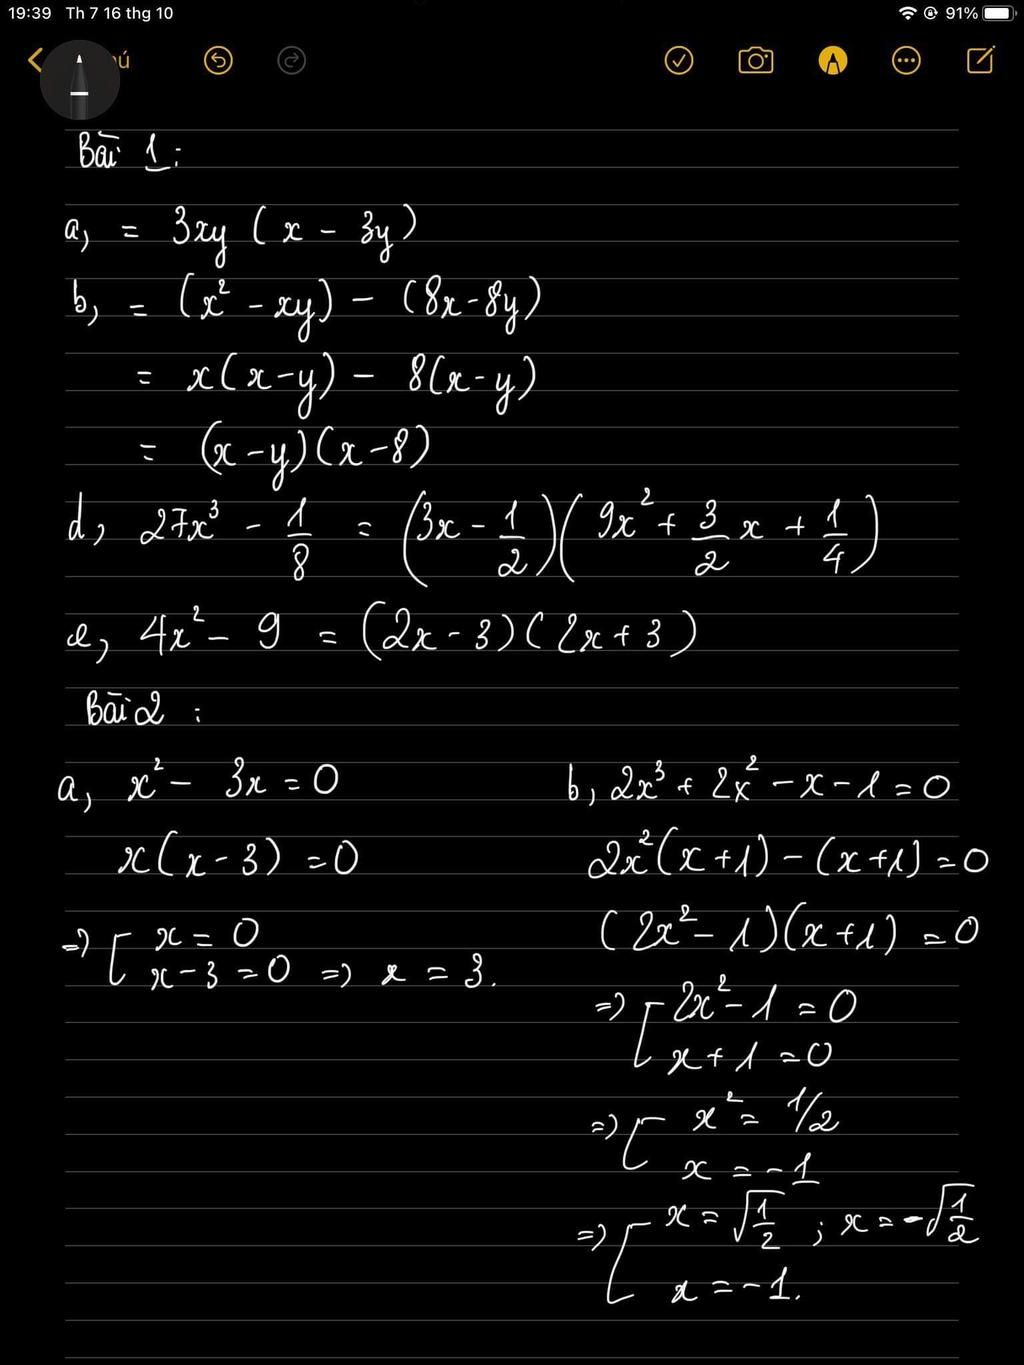 19:39 Th 7 16 thg 10
91%
ú
Bài 1:
a, = 3xy (x - 3y)
b, = (x² - xy) - (8x - 8y)
= x(x-y) - 8(x-y)
= (x-y)(x-8)
d, 27x³ - 1/8 = (3x - 1/2)(9x² + 3/2 x + 1/4)
e, 4x² - 9 = (2x - 3)(2x + 3)
Bài 2 :
a, x² - 3x = 0
x(x-3) = 0
=> [ x = 0
x-3 = 0 => x = 3.
b, 2x³ + 2x² - x - 1 = 0
2x²(x+1) - (x+1) = 0
(2x² - 1)(x+1) = 0
=> [ 2x² - 1 = 0
x + 1 = 0
=> [ x² = 1/2
x = -1
=> [ x = √1/2 ; x = -√1/2
x = -1.